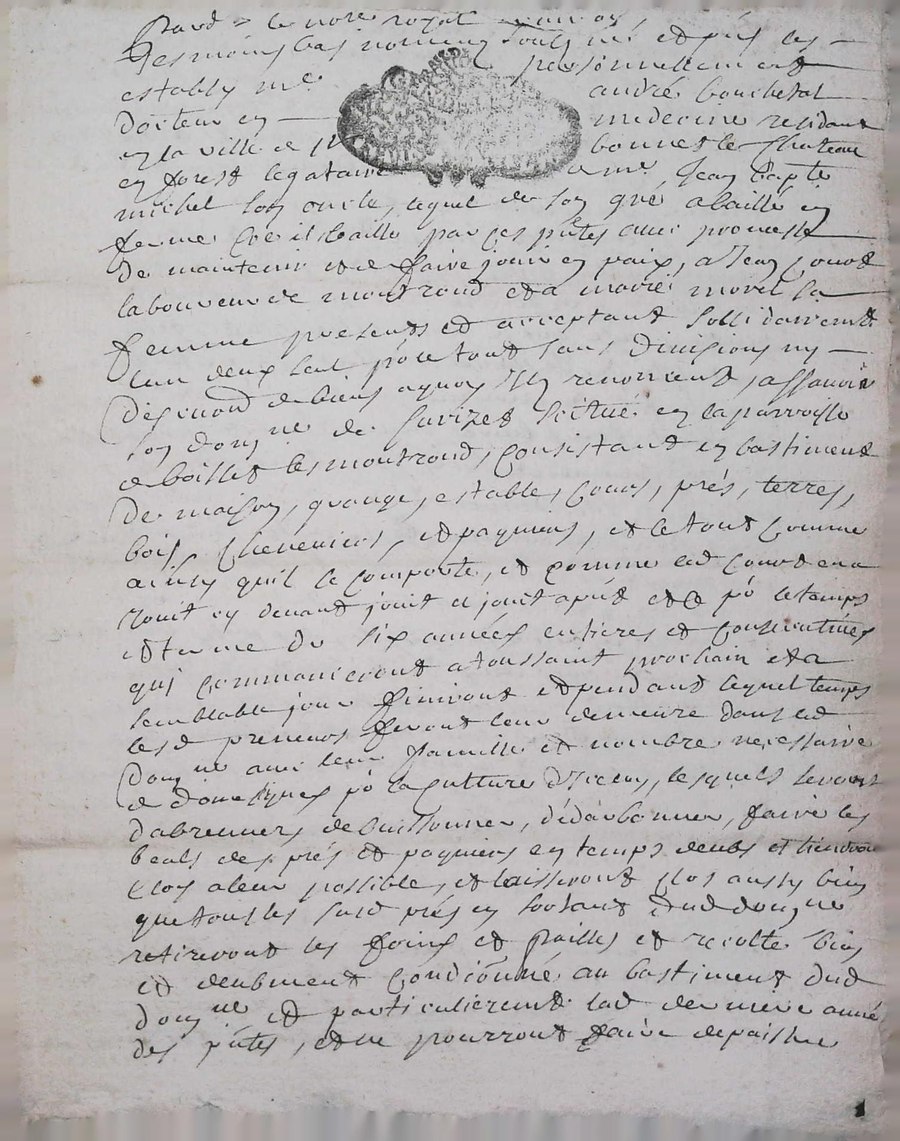 Pard^t le no^re royal
tesmoins bas nommez soubz^né et p^nt les
estably m^e personnellement
andré bouchetal
docteur en medecine residant
en la ville de s^t bonnet le Chateau
en forest legataire de m^e Jean bap^te
michel son oncle, lequel de son gré a baillé en
ferme co^e il baille par ces p^ntes avec promesse
de maintenir et de faire jouir en paix, a Jean
laboureur de montrond et a marie morel sa
femme presents et acceptant sollidairem^t
lun deux seul po^r le tout sans divisions ny
discution de biens a quoy ilz renoncent, assavoir
son dom^ne de situé en la parroisse
de boisset les montrond, consistant en bastiment
de maison, grange, estable, cours, prés, terres,
bois, cheneviers, et paquiers, et le tout comme
ainsy quil se comporte, et comme led en a
jouit cy devant jouit et jouit apnt et ce po^r le temps
et terme de six années entieres et consecutives
qui commanceront a toussaint prochain et a
semblable jour finiront et pendant lequel temps
lesd preneurs feront leur demeure dans led
dom^ne avec leur famille et nombre necessaire
de domestiques po^r la culture diceluy, lesquels seront
dabreuvers debuissonner, dedarbonner, faire les
beals des prés et paquiers en temps deubs et tiendront
clos a leur possible, et laisseront clos aussy bien
que tous les susd prés en sortant dud dom^ne
retireront les foins et pailles et recolte bien
et deubment conditionné au bastiment dud
dom^ne et particulierem^t lad derniere année
des p^ntes, et ne pourront faire depaistre